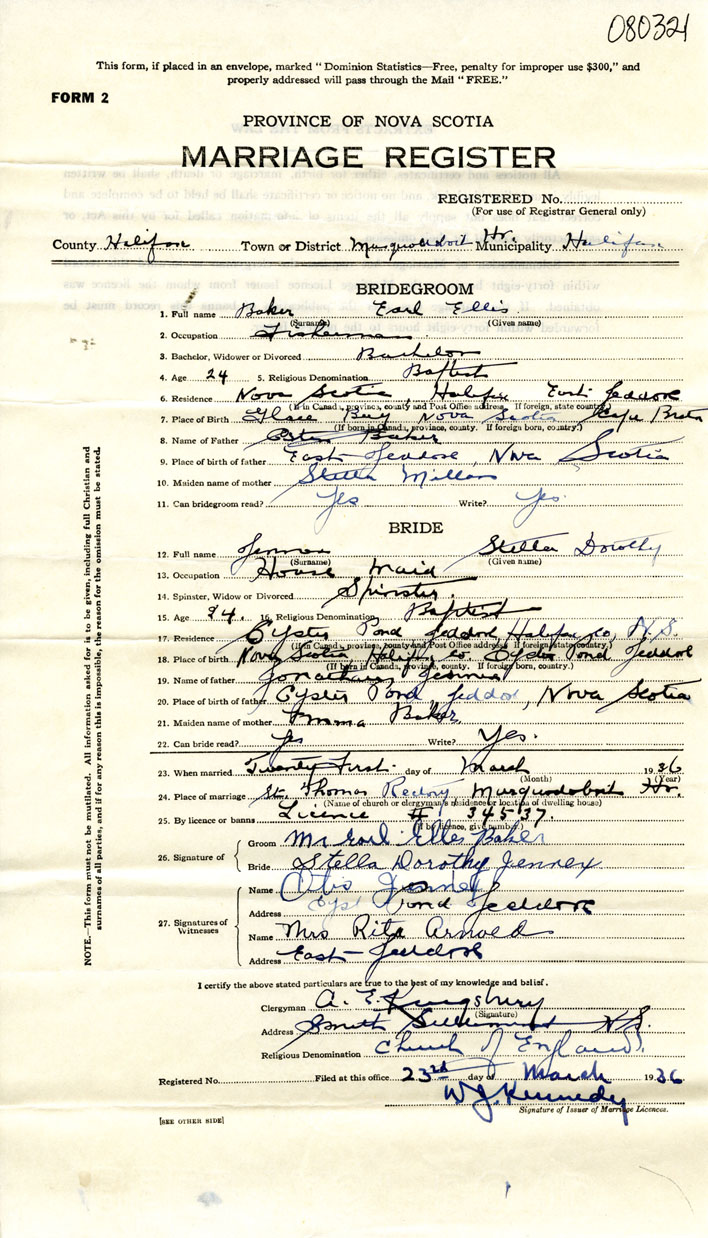 080321
This form, if placed in an envelope, marked "Dominion Statistics—Free, penalty for improper use $300," and
properly addressed will pass through the Mail "FREE."
FORM 2
PROVINCE OF NOVA SCOTIA
MARRIAGE REGISTER
REGISTERED No.
(For use of Registrar General only)
County Halifax Town or District Musquodoboit Hr. Municipality Halifax
BRIDEGROOM
1. Full name Baker Earl Ellis
(Surname) (Given name)
2. Occupation Fisherman
3. Bachelor, Widower or Divorced Bachelor
4. Age 24 5. Religious Denomination Baptist
6. Residence Nova Scotia, Halifax East Jeddore
(If in Canada, province, county and Post Office address. If foreign, state country.)
7. Place of Birth Glace Bay Nova Scotia Cape Breton
(If born in Canada, province, county. If foreign born, country.)
8. Name of Father Baker
9. Place of birth of father East Jeddore, Nova Scotia
10. Maiden name of mother Stella
11. Can bridegroom read? Yes Write? Yes.
BRIDE
12. Full name Jennex Stella Dorothy
(Surname) (Given name)
13. Occupation House Maid
14. Spinster, Widow or Divorced Spinster.
15. Age 16. Religious Denomination Baptist
17. Residence Oyster Pond Jeddore, Halifax Co, N.S.
(If in Canada, province, county and Post Office address. If foreign, state country.)
18. Place of birth Nova Scotia Halifax Co. Oyster Pond Jeddore
(If born in Canada, province, county. If foreign born, country.)
19. Name of father Jonathan Jennex
20. Place of birth of father Oyster Pond Jeddore, Nova Scotia
21. Maiden name of mother Emma Baker
22. Can bride read? Yes Write? Yes.
23. When married Twenty First day of March 1936
(Month) (Year)
24. Place of marriage St. Thomas Rectory Musquodoboit Hr.
(Name of church or clergyman's residence or location of dwelling house)
25. By licence or banns Licence # 34537.
(If by licence, give number.)
26. Signature of
Groom Mr Earl Elles Baker
Bride Stella Dorothy Jennex
27. Signatures of Witnesses
Name Otis Jennex
Address Oyst Pond Jeddore
Name Mrs Rita Arnold
Address East Jeddore
I certify the above stated particulars are true to the best of my knowledge and belief.
Clergyman A. E. Kingsbury
(Signature)
Address N.S.
Religious Denomination Church of England.
Registered No. Filed at this office 23rd day of March 1936
W J. Kennedy
Signature of Issuer of Marriage Licences.
[SEE OTHER SIDE]
NOTE.—This form must not be mutilated. All information asked for is to be given, including full Christian and
surnames of all parties, and if for any reason this is impossible, the reason for the omission must be stated.